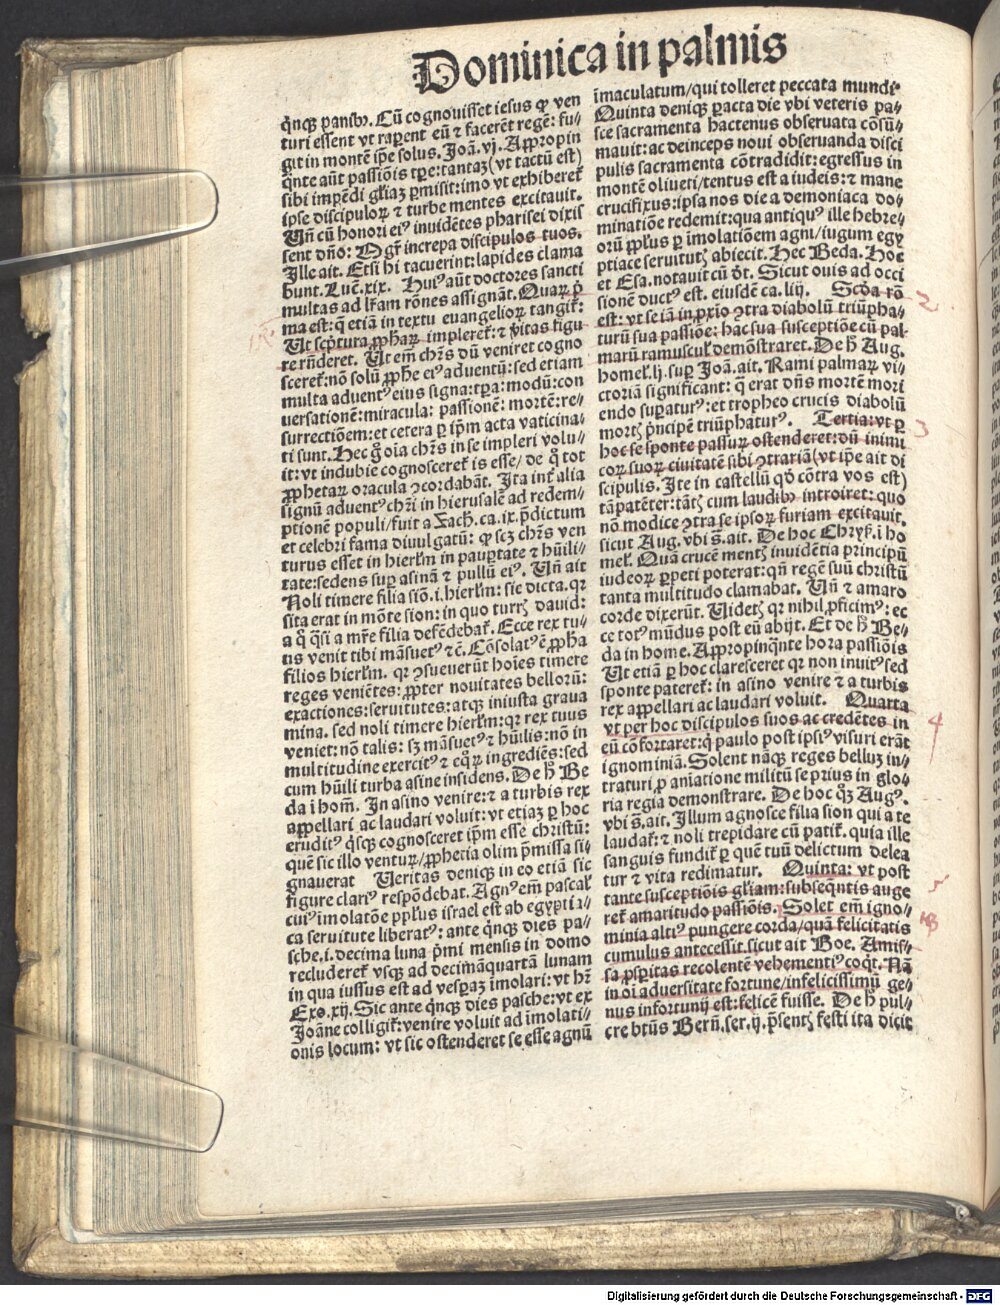 Dominica in palmis
q̈nqꝫ panibꝰ. Cũ cognouisset iesus ꝙ ven
turi essent vt raꝑent eũ ⁊ facerẽt regẽ: fu⸗
git in montẽ ip̄e solus. Joã. vj. Appropin
q̈nte aũt passiõis tp̄e: tantaꝫ (vt tactũ est)
sibi impẽdi gl̃iaꝫ ꝑmisit: imo vt exhiberet᷑
ip̄e discipuloꝝ ⁊ turbe mentes excitauit.
Vñ cũ honori eiꝰ inuidẽtes pharisei dixis
sent dño: Mgr̃ increpa discipulos tuos.
Ille ait. Etsi hi tacuerint: lapides clama
bunt. Luc̃. xix. Huiꝰ aũt doctores sancti
multas ad lr̃am rõnes assignãt. Quaꝝ p̄
ma est: q̃ etiã in textu euangelioꝝ tangit᷑:
Vt scp̃tura ꝓphaꝝ impleret᷑: ⁊ ṽitas figu
re rñderet. Ut em̃ chr̃s dũ veniret cogno
sceret᷑: nõ solũ ꝓphe eiꝰ aduentũ: sed etiam
multa aduentꝰ eius signa: tp̃a: modũ: con
uersationẽ: miracula: passionẽ: mortẽ: re⸗
surrectiõem: et cetera ꝑ ip̄m acta vaticina⸗
ti sunt. Hec gͦ oĩa chr̃s in se impleri volu⸗
it: vt indubie cognosceret᷑ is esse / de qͦ tot
ꝓphetaꝝ oracula ↄcordabãt. Ita int᷑ alia
signũ aduentꝰ chr̃i in hierusalẽ ad redem⸗
ptionẽ populi / fuit a Zach. ca. ix. p̄dictum
et celebri fama diuulgatũ: ꝙ scꝫ chr̃s ven
turus esset in hierl̃m in pauꝑtate ⁊ hũili⸗
tate: sedens suꝑ asinã ⁊ pullũ eiꝰ. Vñ ait
Noli timere filia siõ. i. hierl̃m: sic dicta. qꝛ
sita erat in mõte sion: in quo turrꝭ dauid:
a q̊ q̈si a mr̃e filia defẽdebat᷑. Ecce rex tu⸗
us venit tibi mãsuetꝰ ⁊ c̃. Cõsolatꝰ ẽ ꝓpha
filios hierl̃m. qꝛ ↄsueuerũt hoĩes timere
reges veniẽtes: ꝓpter nouitates bellorũ:
exactiones: seruitutes: atqꝫ iniusta graua
mina. sed noli timere hierl̃m: qꝛ rex tuus
veniet: nõ talis: sꝫ mãsuetꝰ ⁊ hũilis: nõ in
multitudine exercitꝰ ⁊ eq̊ꝝ ingrediẽs: sed
cum hũili turba asine insidens. De hͦ Be
da i hom̃. In asino venire: ⁊ a turbis rex
appellari ac laudari voluit: vt etiaꝫ ꝑ hoc
eruditꝰ q̇sqꝫ cognosceret ip̄m esse christũ:
quẽ sic illo venturꝝ / ꝓphetia olim p̄missa si⸗
gnauerat Ueritas deniqꝫ in eo etiã sic
figure clariꝰ respõdebat. Agnꝰ em̃ pascal̃
cuiꝰ imolatõe pp̃lus israel est ab egyptia⸗
ca seruitute liberatꝰ: ante q̈nqꝫ dies pa⸗
sche. i. decima luna p̄mi mensis in domo
recluderet᷑ vsqꝫ ad decimãquartã lunam
in qua iussus est ad vesꝑaꝫ imolari: vt hr̃
Exo. xij. Sic ante q̈nqꝫ dies pasche: vt ex
Joãne colligit᷑: venire voluit ad imolati⸗
onis locum: vt sic ostenderet se esse agnũ
ĩmaculatum / qui tolleret peccata mundi
Quinta deniqꝫ ꝑacta die vbi veteris pa⸗
sce sacramenta hactenus obseruata cõsũ⸗
mauit: ac deinceps noui obseruanda disci
pulis sacramenta cõtradidit: egressus in
montẽ oliueti / tentus est a iudeis: ⁊ mane
crucifixus: ipsa nos die a demoniaca do⸗
minatiõe redemit: qua antiquꝰ ille hebre⸗
orũ pp̃lus ꝑ imolatiõem agni / iugum egy
ptiace seruitutꝭ abiecit. Hec Beda. Hoc
et Esa. notauit cũ dt̃. Sicut ouis ad occi
sionẽ ductꝰ est. eiusdẽ ca. liij. Scďa rõ
est: vt se iã in ꝓxio ↄtra diabolũ triũpha⸗
turũ sua passiõe: hac sua susceptiõe cũ pal⸗
marũ ramuscul̃ demõstraret. De hͦ Aug.
homel̃. lj. suꝑ Joã. ait. Rami palmaꝝ vi⸗
ctoriã significant: q̃ erat dñs mortẽ mori
endo suꝑaturꝰ: et tropheo crucis diabolũ
mortꝭ p̄ncipẽ triũphaturꝰ. Tertia: vt ꝑ
hoc se sponte passuꝝ ostenderet: dũ inimi
coꝝ suoꝝ ciuitatẽ sibi ↄtrariã (vt ip̄e ait di
scipulis. Ite in castellũ qď cõtra vos est)
tã patẽter: tãtꝭ cum laudibꝰ introiret: quo
nõ modice ↄtra se ipsoꝝ furiam excitauit.
sicut Aug. vbi s̃. ait. De hoc Chrys̃. i ho
mel̃. Quã crucẽ mentꝭ inuidẽtia principũ
iudeoꝝ ꝑpeti poterat: qñ regẽ suũ christũ
tanta multitudo clamabat. Vñ ⁊ amaro
corde dixerũt. Uidetꝭ qꝛ nihil ꝓficimꝰ: ec
ce totꝰ mũdus post eũ abijt. Et de hͦ Be⸗
da in home. Appropinq̈nte hora passiõis
Ut etiã ꝑ hoc claresceret qꝛ non inuitꝰ sed
sponte pateret᷑: in asino venire ⁊ a turbis
rex appellari ac laudari voluit. Quarta
vt per hoc discipulos suos ac credẽtes in
eũ cõfortaret: q̇ paulo post ipsiꝰ visuri erãt
ignominiã. Solent nãqꝫ reges belluꝫ in⸗
traturi ꝓ aniatione militũ se prius in glo⸗
ria regia demonstrare. De hoc q̊qꝫ Augꝰ.
vbi s̃. ait. Illum agnosce filia sion qui a te
laudat᷑: ⁊ noli trepidare cũ patit᷑. quia ille
sanguis fundit᷑ ꝑ quẽ tuũ delictum delea
tur ⁊ vita redimatur. Quinta: vt post
tante susceptiõis gl̃iam: subseq̈ntis auge
ret᷑ amaritudo passiõis. Solet em̃ igno⸗
minia altiꝰ pungere corda / quã felicitatis
cumulus antecessit. sicut ait Boe. Amis⸗
sa ꝓsꝑitas recolentẽ vehementiꝰ coq̈t. Nã
in oĩ aduersitate fortune / infelicissimũ ge⸗
nus infortunij est: felicẽ fuisse. De hͦ pul⸗
cre btũs Berñ. ser. ij. p̄sentꝭ festi ita dicit
2
3
4
5
NB
Digitalisierung gefördert durch die Deutsche Forschungsgemeinschaft - DFG